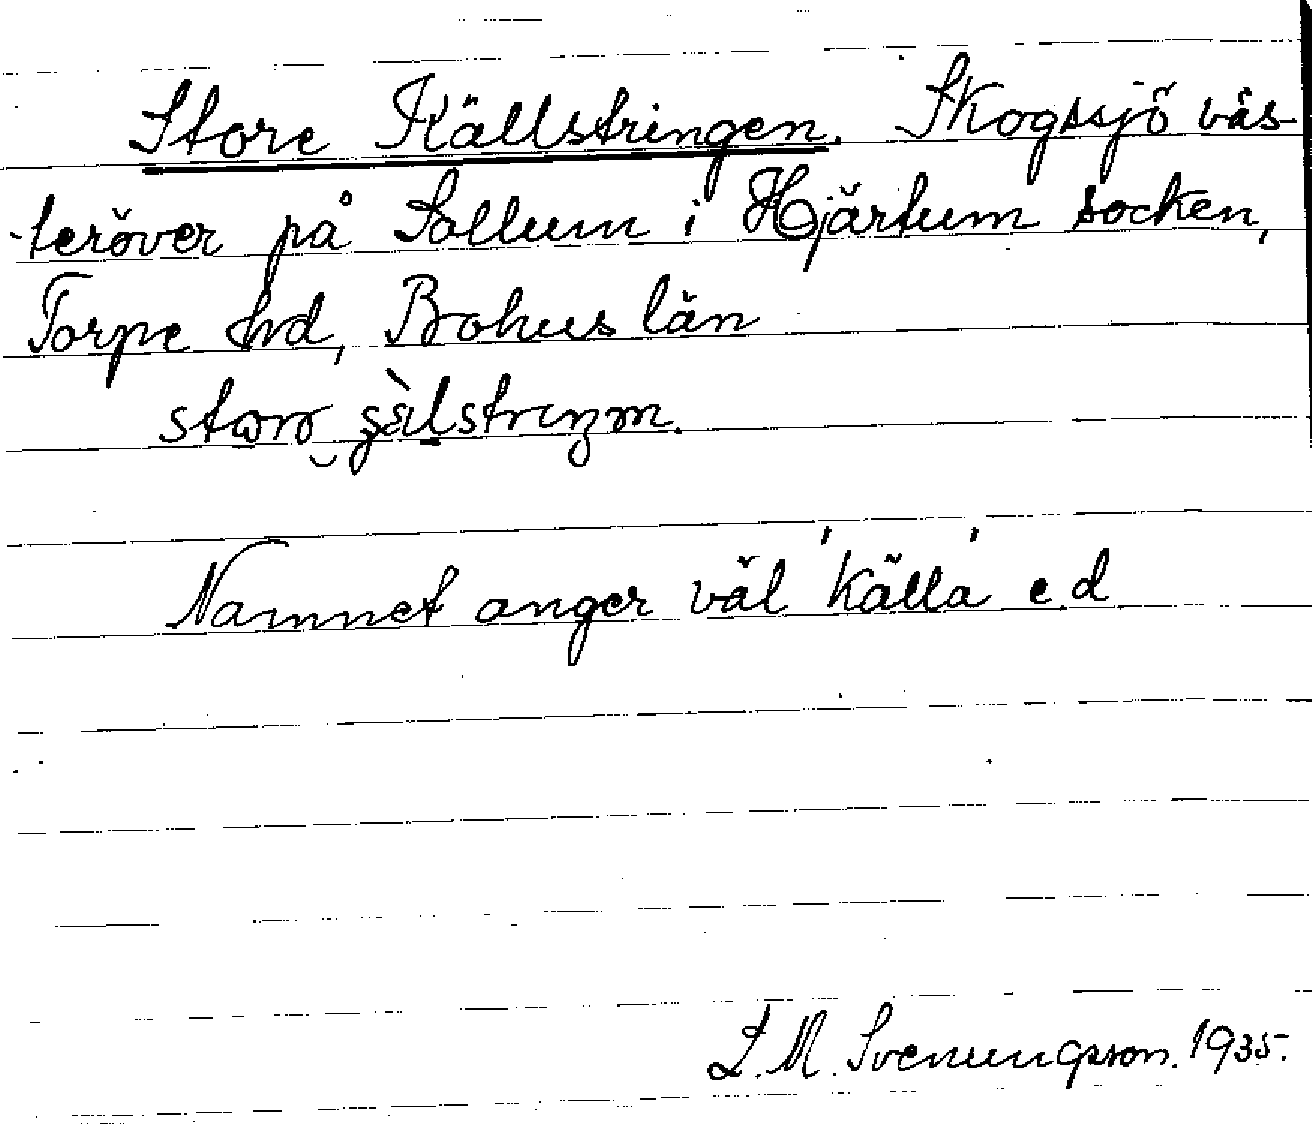 Store Källstringen. Skogssjö väs-
teröver på Sollum i Hjärtum socken,
Torpe hd, Bohus län
Namnet anger väl 'källa' e d
L. M. Svenungsson. 1935.